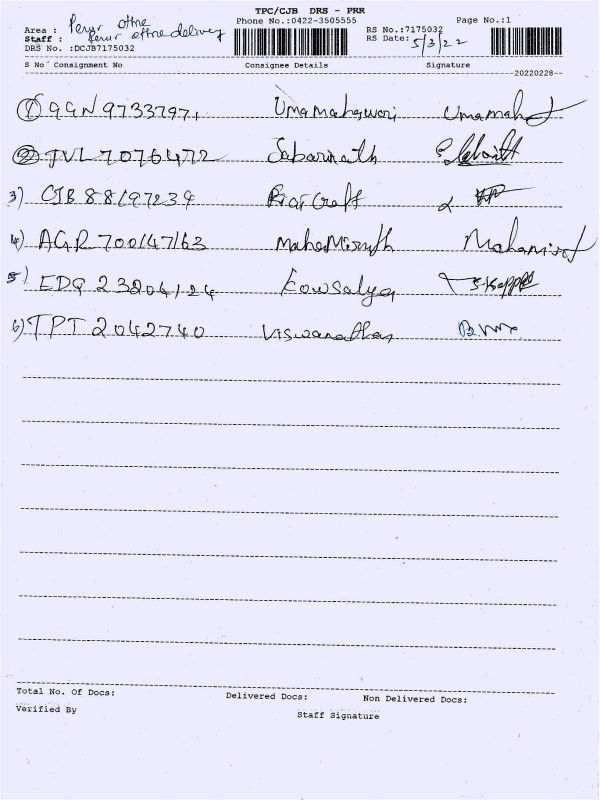 TPC/CJB DRS - PRR
Phone No.:0422-3505555 Page No.:1
Area : Perur
Staff : Perur delivery
RS No.:7175032
RS Date: 5/3/22
DRS No. :DCJB7175032
S No Consignment No Consignee Details Signature
20220228
1) GGN 97337971 Umamaheswari Umamah
2) TVL 7076472 Sabarinath
3) CJB 88197239 Craft
4) AGR 700147163
5) EDG 23204124 Kowsalya
6) TPT 2042740 Viswanathan
Total No. Of Docs: Delivered Docs: Non Delivered Docs:
Verified By Staff Signature